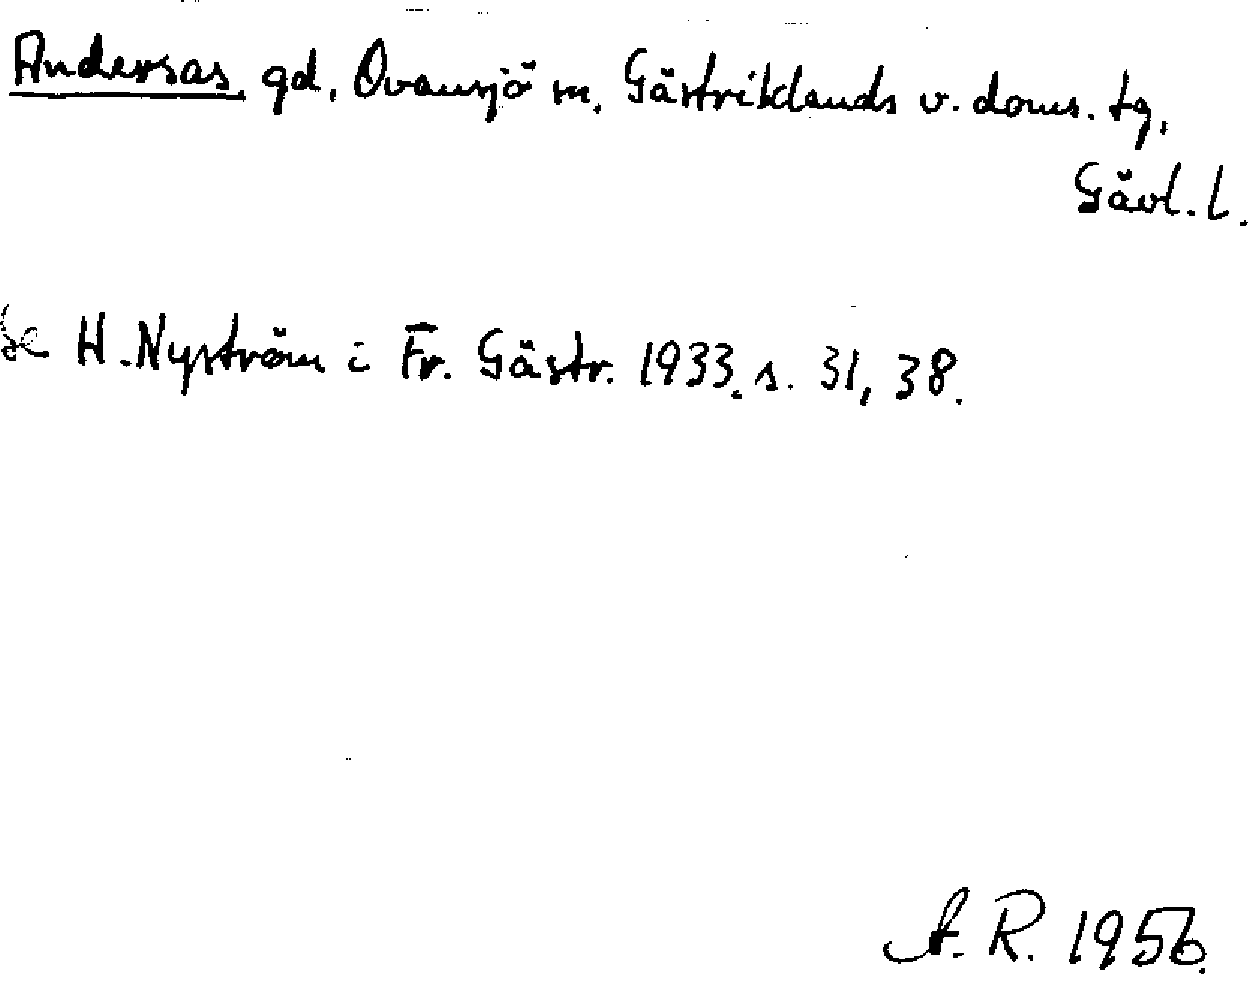 Andersas, gd, Ovansjö sn, Gästriklands v. doms. tg,
Gävl. l.
Se H. Nyström i Fr. Gästr. 1933. s. 31, 38.
A. R. 1956.